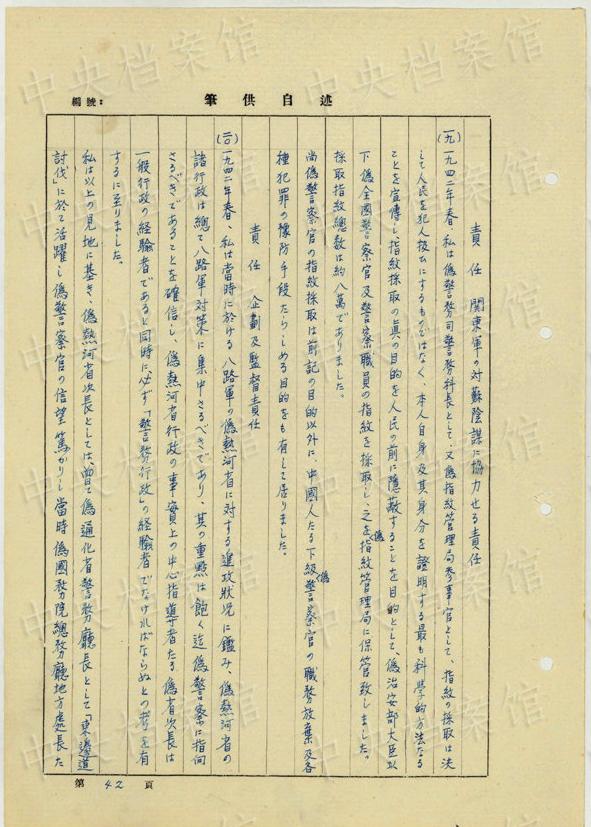 編號：
筆供自述
責任　関東軍の対蘇陰謀に協力せる責任
(一九)一九四二年春、私は偽警務司警務科長として、又偽指紋管理局参事官として、指紋の採取は决
して人民を犯人扱ひにするものではなく、本人自身及其身分を證明する最も科学的方法なる
ことを宣傳し、指紋採取の真の目的を人民の前に隠蔽することを目的として、偽治安部大臣以
下偽全國警察官及警察職員の指紋を採取し、之を偽指紋管理局に保管致しました。
採取指紋總数は約八萬でありました。
尚偽警察官の指紋採取は前記の目的以外に、中國人たる下級偽警察官の職務放棄及各
種犯罪の豫防手段たらしめる目的をも有して居りました。
責任　企劃及監督責任
(二〇)一九四二年春、私は當時に於ける八路軍の偽熱河省に対する進攻狀況に鑑み、偽熱河省の
諸行政は總て八路軍対策に集中さるべきであり、其の重點は飽く迄偽警察に指向
さるべきであることを確信し、偽熱河省行政の事實上の中心指導者たる偽省次長は
一般行政の経験者であると同時に、必ず「警務行政」の経験者でなければならぬとの考を有
するに至りました。
私は以上の見地に基き、偽熱河省次長としては、曽て偽通化省警務廳長として「東邊道
討伐」に於て活躍し偽警察官の信望篤かりし當時偽國務院總務廳地方處長た
第 42 頁
中央档案馆